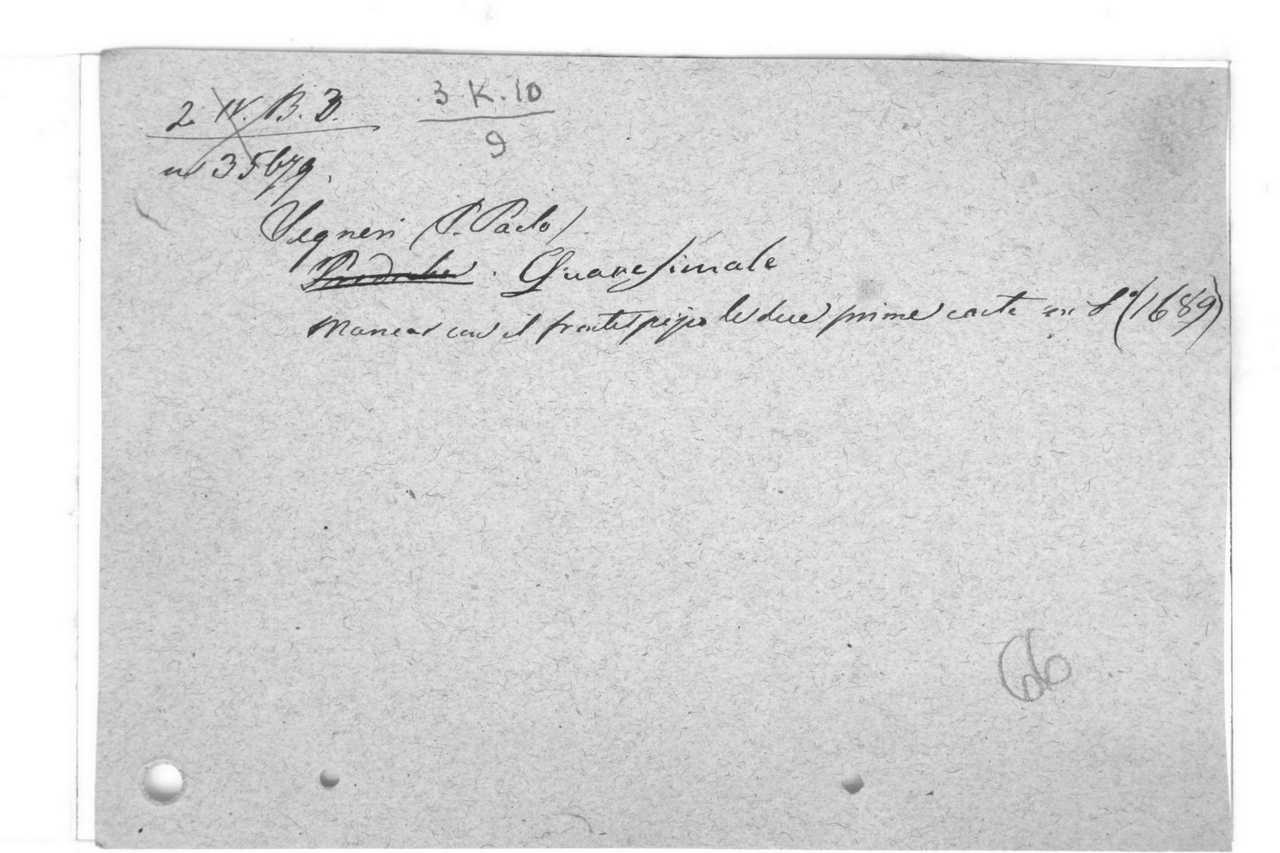 2 IV. B. 3.
3 K. 10
9
n 35679.
Segneri (P. Paolo)
Prediche. Quaresimale
Manca con il frontespizio le due prime carte in 8° (1689)
66